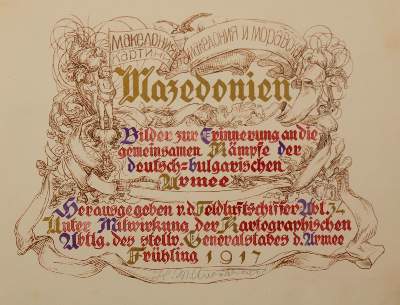 Mazedonien
Bilder zur Erinnerung an die
gemeinsamen Kämpfe der
deutsch=bulgarischen
Armee
Herausgegeben v.d. Feldluftschiffer Abt. 34
Unter Mitwirkung der Kartographischen
Abtlg. des stellv. Generalstabes d. Armee
Frühling 1917